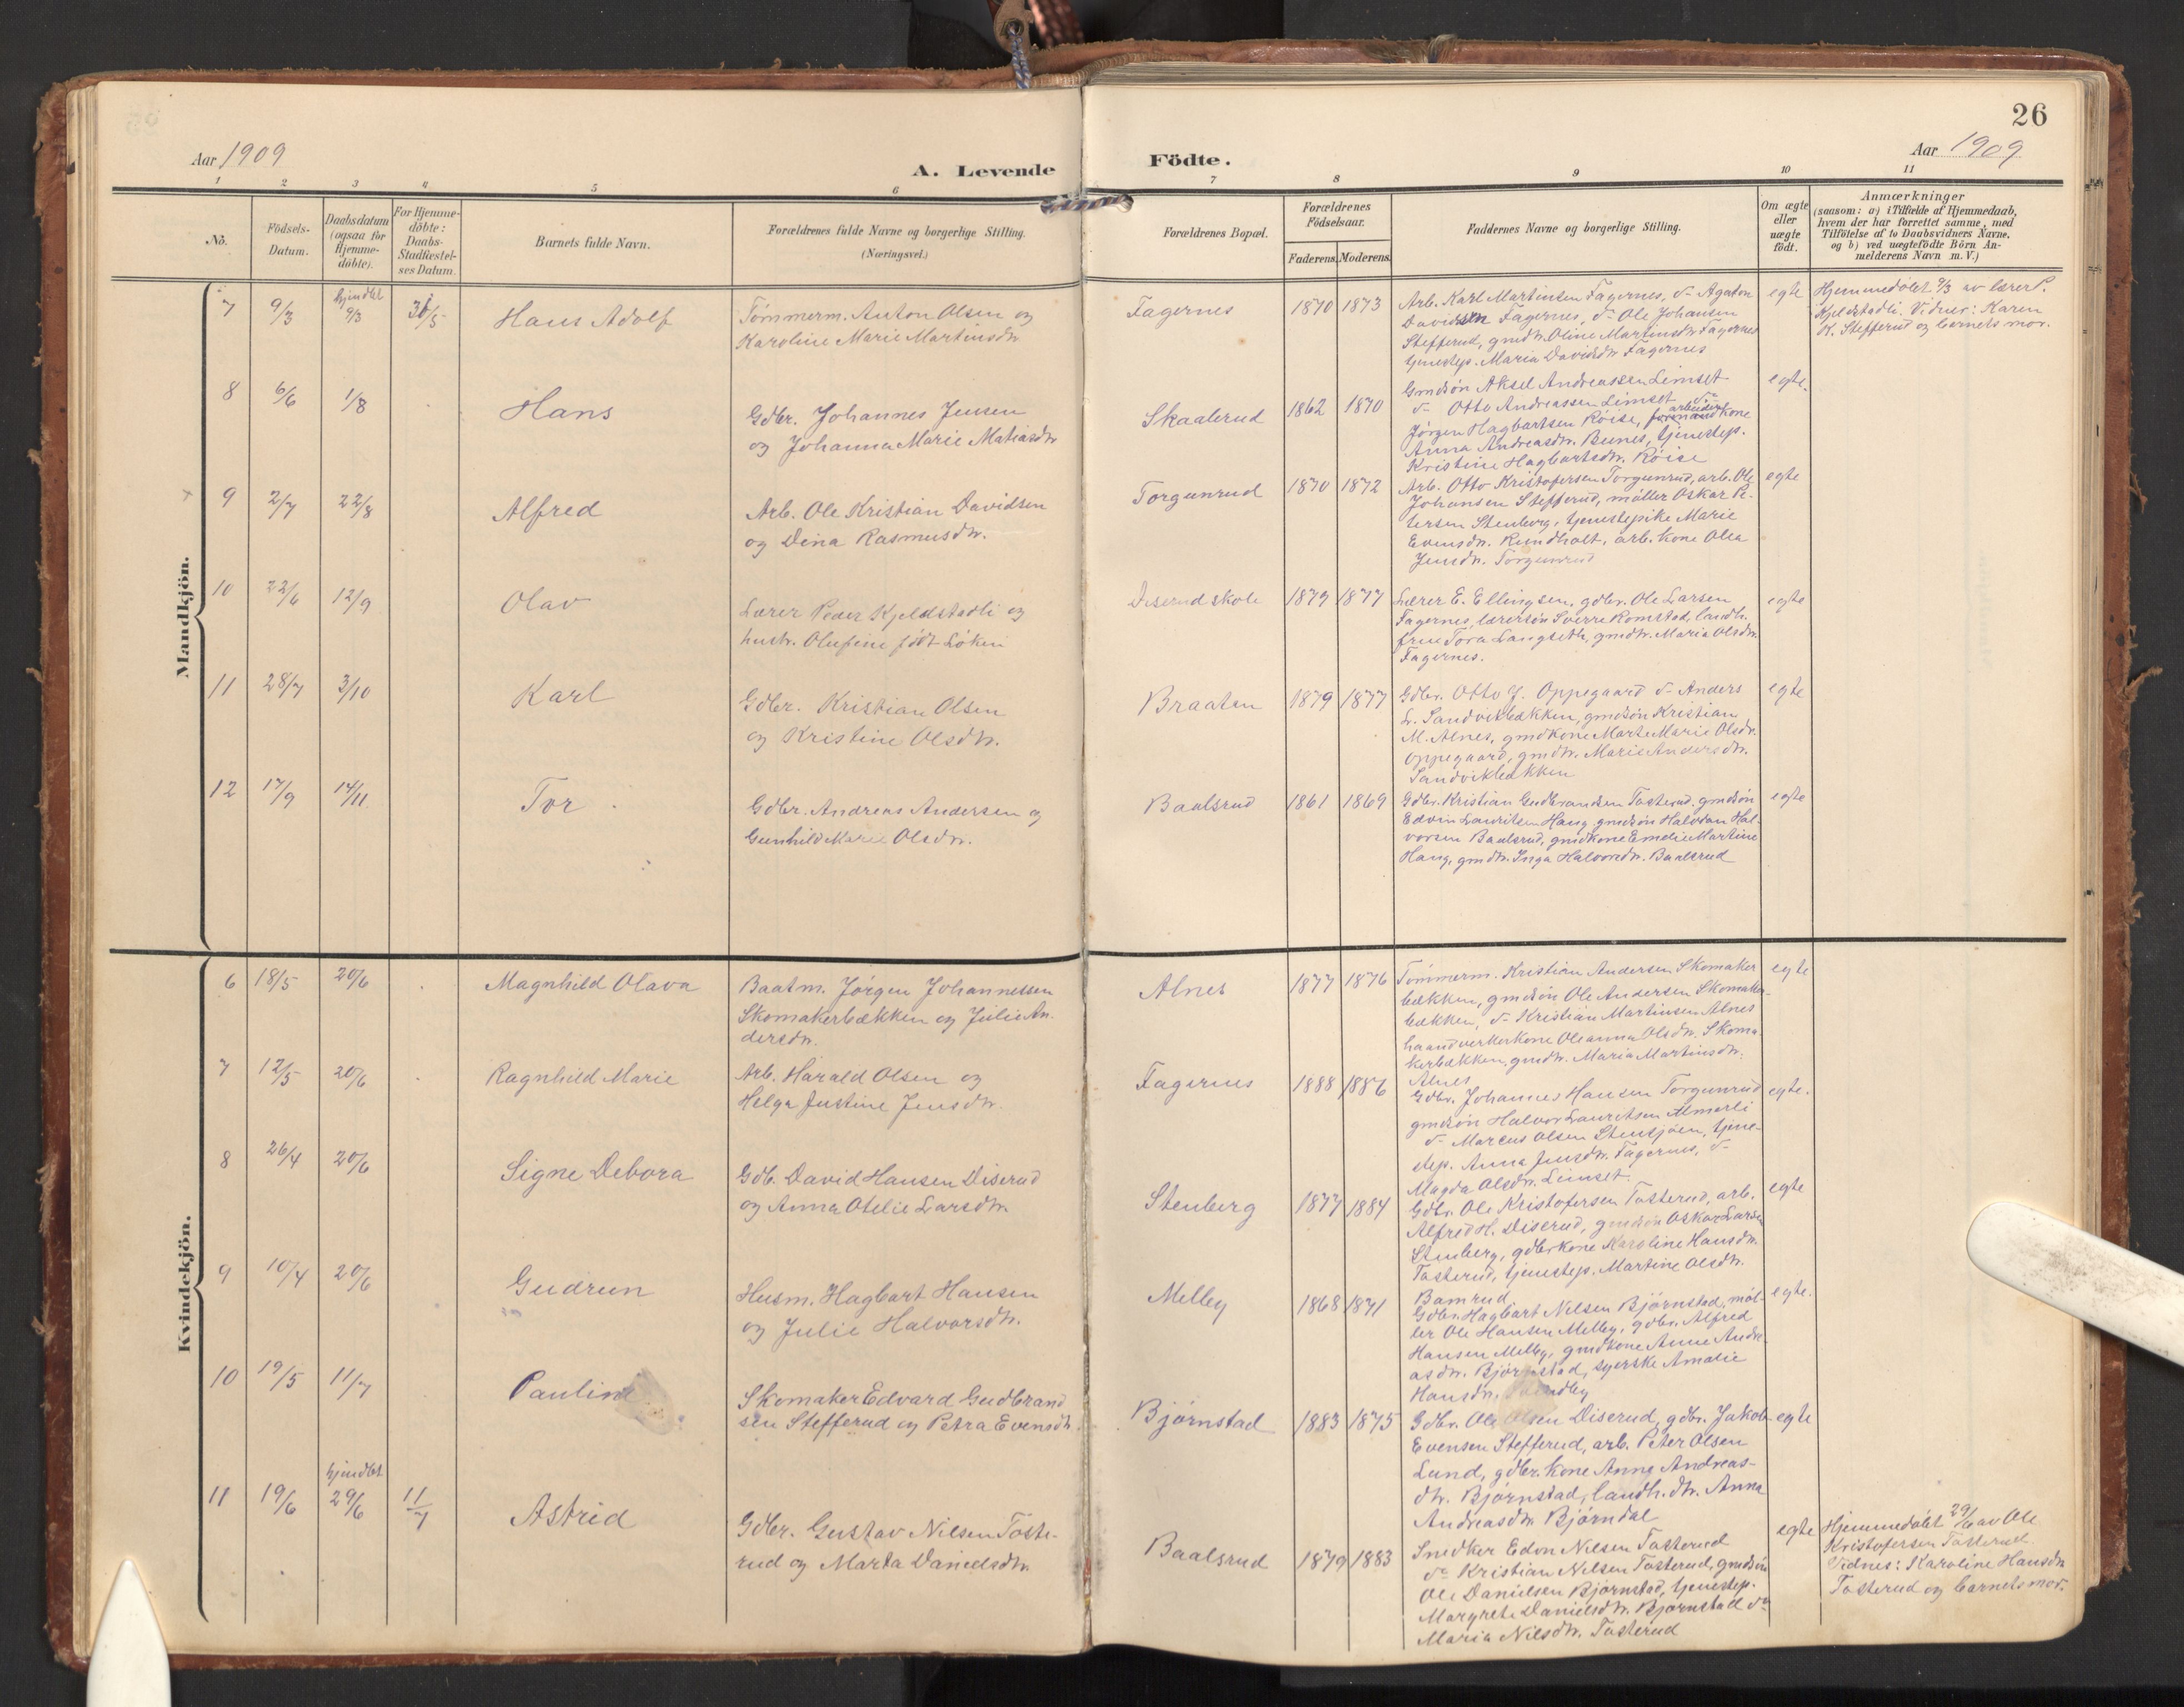 Aar 1909
A. Levende
Födte.
26
Aar 1909
1 2 3 4 5 6 7 8 9 10 11
No.
Födsels-
Datum.
Daabsdatum
(ogsaa for
Hjemme-
döbte).
For Hjemme-
döbte:
Daabs-
Stadfæstel-
ses Datum.
Barnets fulde Navn.
Forældrenes fulde Navne og borgerlige Stilling.
(Næringsvei.)
Forældrenes Bopæl.
Forældrenes
Födselsaar.
Faderens. Moderens.
Faddernes Navne og borgerlige Stilling.
Om ægte
eller
uægte
födt.
Anmærkninger
(saasom: a) i Tilfælde af Hjemmedaab,
hvem der har forrettet samme, med
Tilföielse af to Daabsvidners Navne,
og b) ved uægtefödte Börn An-
melderens Navn m. V.)
Mandkjön.
7 9/3 hjmdbt 9/3 31/5 Hans Adolf
Tømmerm. Anton Olsen og
Karoline Marie Martinsdtr
Fagernes 1870 1873
Arb. Karl Martinsen Fagernes, do Agaton
Davidsen Fagernes, do Ole Johansen
Stefferud, gmdtr. Oline Martinsdtr Fagernes
tjenestep. Maria Davidsdtr Fagernes
egte
Hjemmedøbt 9/3 av lærer P.
Kjeldstadli. Vidner: Karen
K. Stefferud og barnets mor.
8 6/6 1/8 Hans
Gdbr. Johannes Jensen
og Johanna Marie Matiasdtr
Skaalerud 1862 1870
Gmdsøn Aksel Andreassen Limset
do Otto Andreassen Limset do
Jørgen Hagbartsen Røise, formand arbeider kone
Anna Andreasdtr. Bunes, tjenestep.
Kristine Hagbartsdtr. Røise
egte.
9 2/7 22/8 Alfred
Arb. Ole Kristian Davidsen
og Dina Rasmusdtr.
Torgunrud 1870 1872
Arb. Otto Kristofersen Torgunrud, arb. Ole
Johansen Stefferud, møller Oskar Pe-
tersen Stenberg, tjenestepike Marie
Evensdtr. Rundholt, arb. kone Olea
Jensdtr. Torgunrud
egte
10 22/6 12/9 Olav
Lærer Peder Kjeldstadli og
hustr. Olufine født Løken
Diserud skole 1879 1877
Lærer E. Ellingsen, gdbr. Ole Larsen
Fagernes, lærersøn Sverre Romstad, landh.
frue Tora Langseth, gmdtr. Maria Olsdtr.
Fagernes.
egte
11 28/7 3/10 Karl
Gdbr. Kristian Olsen
og Kristine Olsdtr.
Braaten 1879 1877
Gdbr. Otto J. Oppegaard do Anders
L. Sandvikbækken, gmdsøn Kristian
M. Alnes, gmdkone Marte Marie Olsdtr.
Oppegaard, gmdtr. Marie Andersdtr.
Sandvikbækken
egte
12 17/9 14/11 Tor
Gdbr. Andreas Andersen og
Gunhild Marie Olsdtr.
Baalsrud 1861 1869
Gdbr. Kristian Gudbrandsen Tosterud, gmdsøn
Edvin Lauritsen Haug, gmdsøn Halvdan Hal-
vorsen Baalsrud, gmdkone Emelie Martine
Haug, gmdtr. Inga Halvorsdtr. Baalsrud
egte
Kvindekjön.
6 18/5 20/6 Magnhild Olava
Baatm. Jørgen Johannessen
Skomakerbækken og Julie An-
dersdtr.
Alnes 1877 1876
Tømmerm. Kristian Andersen Skomaker
bækken, gmdsøn Ole Andersen Skomaker-
bækken, do Kristian Martinsen Alnes
haandverkerkone Oleanna Olsdtr. Skoma
kerbækken, gmdtr. Maria Martinsdtr.
Alnes
egte
7 12/5 20/6 Ragnhild Marie
Arb. Harald Olsen og
Helga Justine Jensdtr.
Fagernes 1888 1886
Gdbr. Johannes Hansen Torgunrud
gmdsøn Halvor Lauritsen Almerli
do Marcus Olsen Stensjøen, tjene-
step. Anna Jensdtr. Fagernes, do
Magda Olsdtr. Limset.
egte.
8 26/4 20/6 Signe Debora
Gdb. David Hansen Diserud
og Anna Otelie Larsdtr.
Stenberg 1877 1884
Gdbr. Ole Kristofersen Tosterud, arb.
Alfred H. Diserud, gmdsøn Oskar Larsen
Stenberg, gdbrkone Karoline Hansdtr.
Tosterud, tjenestep. Martine Olsdtr.
Bamrud
egte
9 10/4 20/6 Gudrun
Husm. Hagbart Hansen
og Julie Halvorsdtr.
Melby 1868 1871
Gdbr. Hagbart Nilsen Bjørnstad, møl-
ler Ole Hansen Melby, gdbr. Alfred
Hansen Melby, gmdkone Anne Andre-
asdtr. Bjørnstad, syerske Amalie
Hansdtr.
egte.
10 19/5 11/7 Pauline
Skomaker Edvard Gudbrand
sen Stefferud og Petra Evensdtr.
Bjørnstad 1883 1875
Gdbr. Ole Olsen Diserud, gdbr. Jakob
Evensen Stefferud, arb. Peter Olsen
Lund, gdbr. kone Anne Andreas-
dtr. Bjørnstad, landh. dtr. Anna
Andreasdtr Bjørndal
egte
11 19/6 hjmdbt 29/6 11/7 Astrid
Gdbr. Gustav Nilsen Toste-
rud og Marta Danielsdtr.
Baalsrud 1879 1883
Snedker Edvn Nilsen Tosterud
do Kristian Nilsen Tosterud, gmdsøn
Ole Danielsen Bjørnstad, tjenestep.
Margrete Danielsdtr. Bjørnstad do
Maria Nilsdtr. Tosterud
egte
Hjemmedøbt 29/6 av Ole
Kristofersen Tosterud
Vidnes: Karoline Hansdtr
Tosterud og barnets mor.